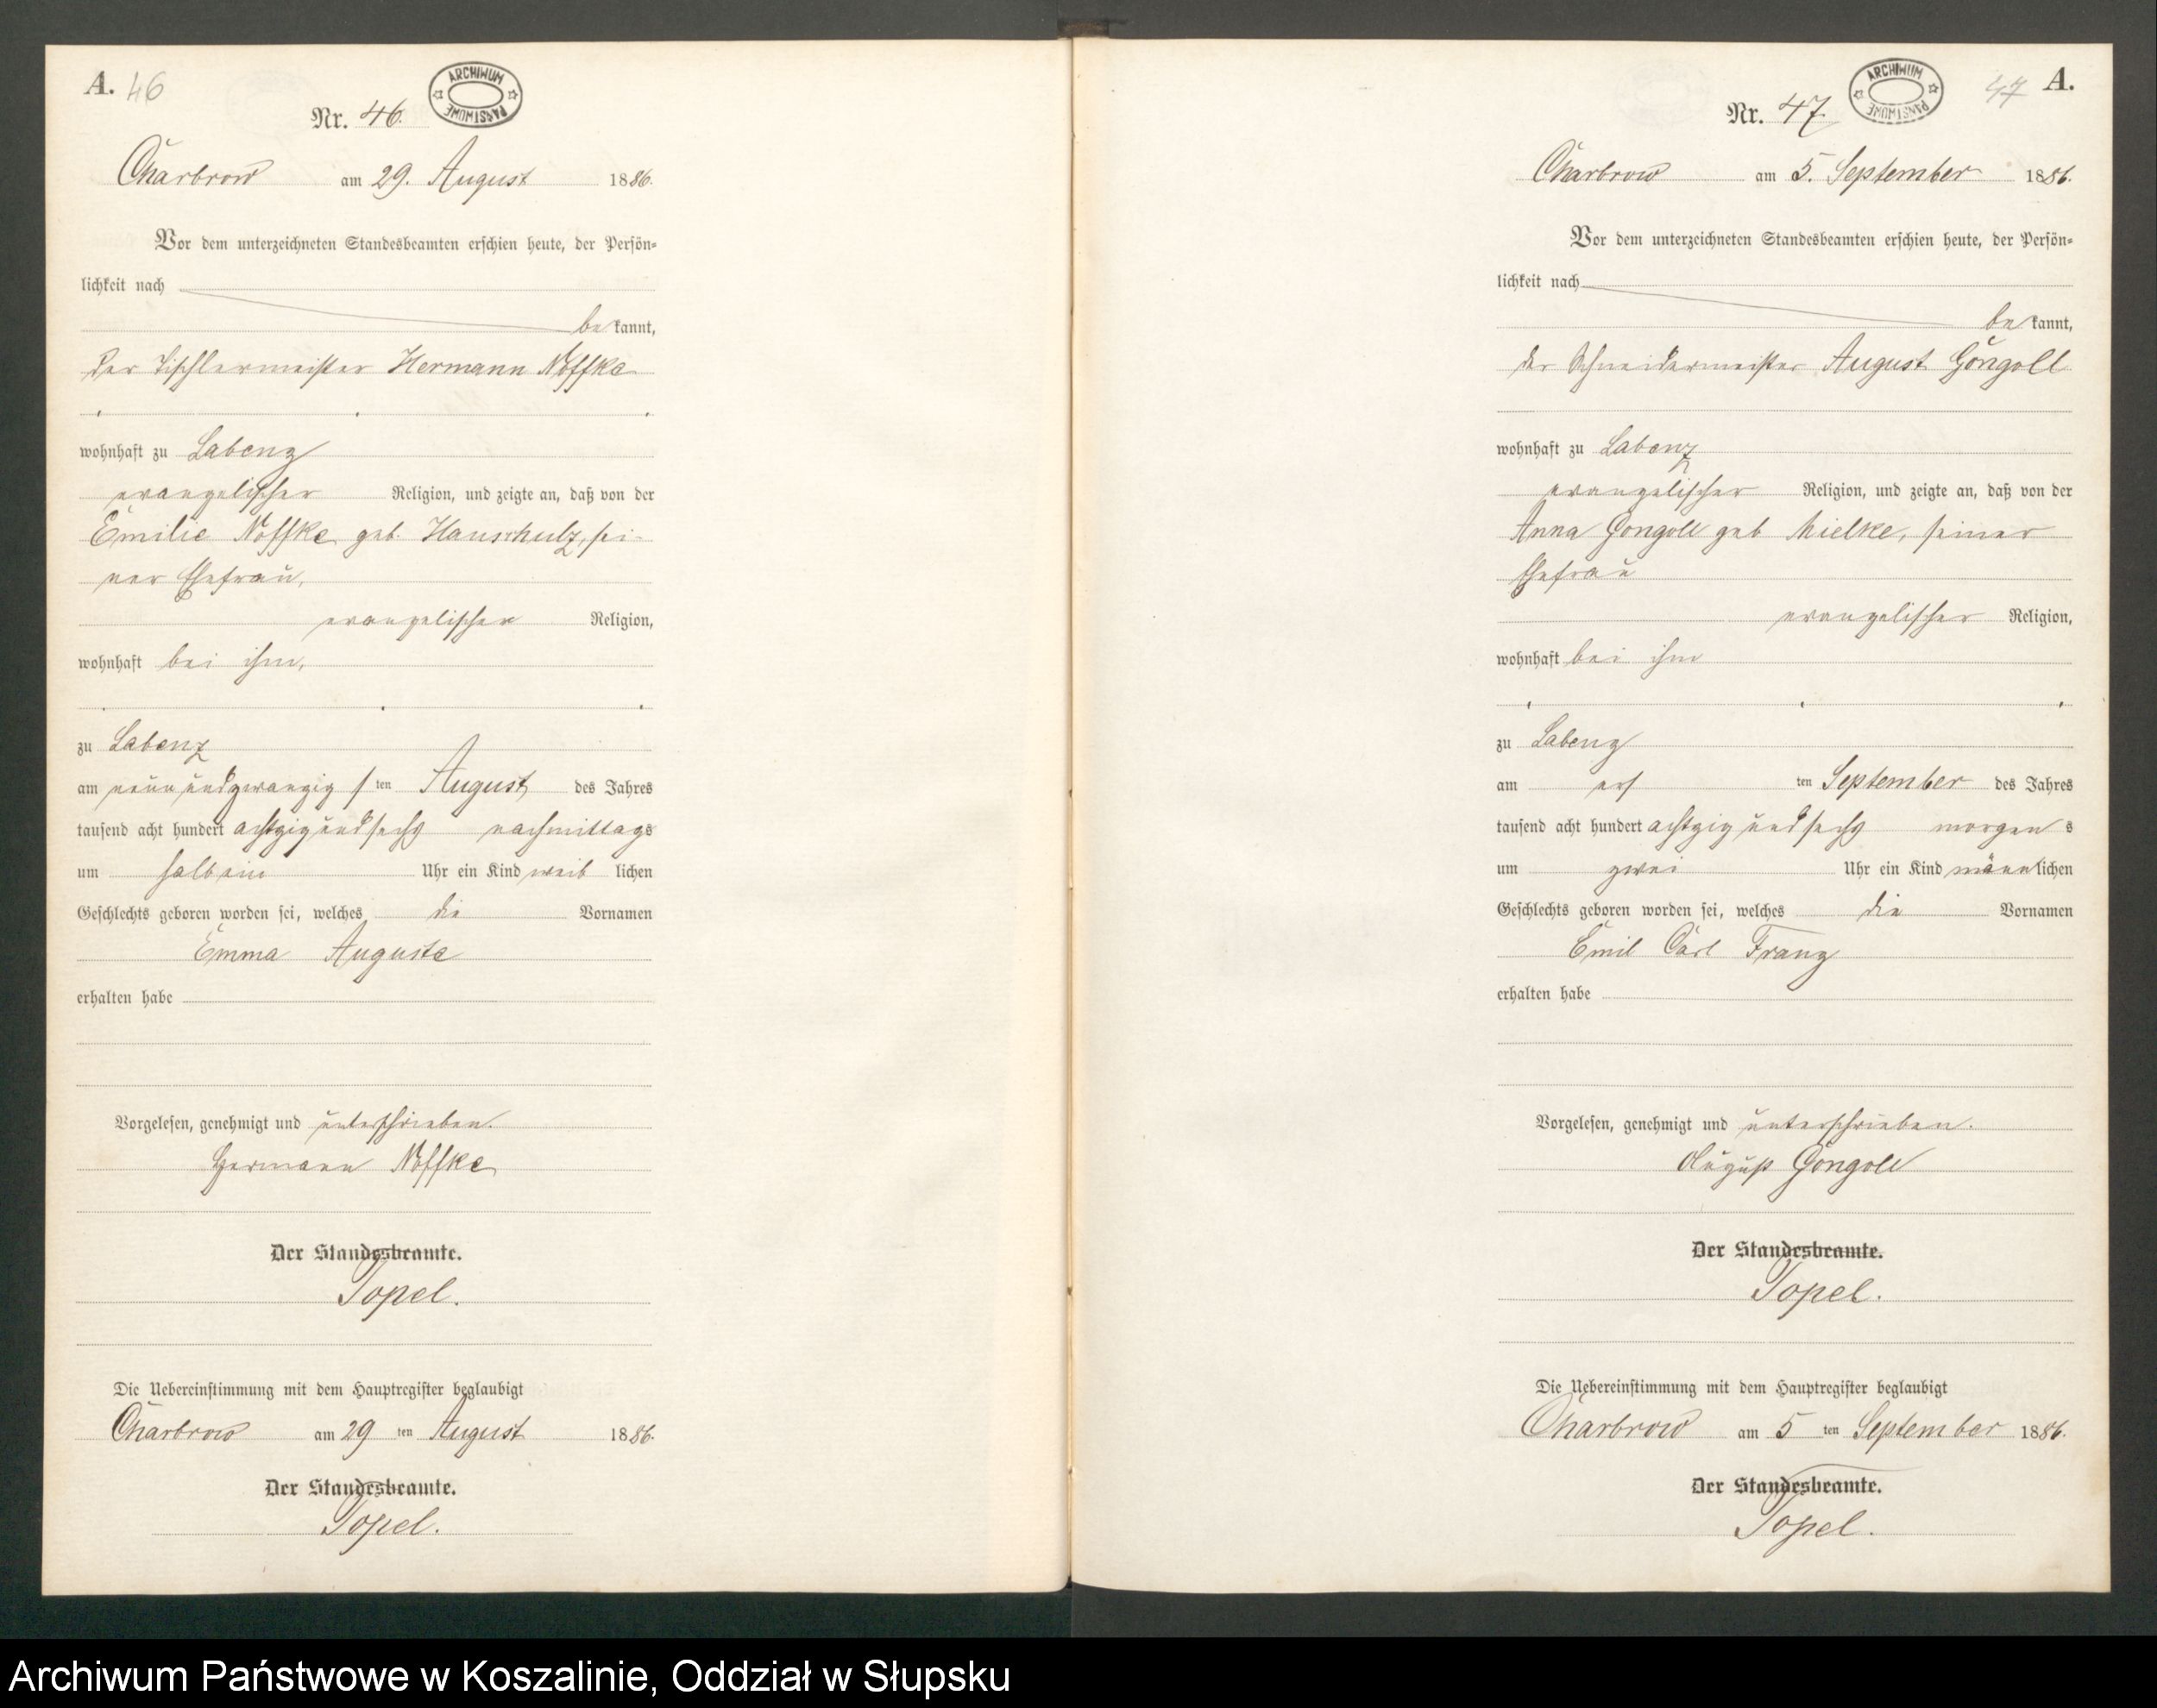 A. 46
Nr. 46.
ARCHIWUM PAŃSTWOWE
Charbrow am 29. August 1886.
Vor dem unterzeichneten Standesbeamten erschien heute, der Persön-
lichkeit nach
bekannt,
der Tischlermeister Hermann Noffke
wohnhaft zu Labenz
evangelischer Religion, und zeigte an, daß von der
Emilie Noffke geb. Hauschulz, sei-
ner Ehefrau,
evangelischer Religion,
wohnhaft bei ihm,
zu Labenz
am neunundzwanzigsten August des Jahres
tausend acht hundert achtzig und sechs nachmittags
um halb ein Uhr ein Kind weiblichen
Geschlechts geboren worden sei, welches die Vornamen
Emma Auguste
erhalten habe
Vorgelesen, genehmigt und unterschrieben.
Hermann Noffke
Der Standesbeamte.
Topel.
Die Uebereinstimmung mit dem Hauptregister beglaubigt
Charbrow am 29ten August 1886.
Der Standesbeamte.
Topel.
47 A.
Nr. 47.
ARCHIWUM PAŃSTWOWE
Charbrow am 5. September 1886.
Vor dem unterzeichneten Standesbeamten erschien heute, der Persön-
lichkeit nach
bekannt,
der Schneidermeister August Gongoll
wohnhaft zu Labenz
evangelischer Religion, und zeigte an, daß von der
Anna Gongoll geb Mielke, seiner
Ehefrau
evangelischer Religion,
wohnhaft bei ihm
zu Labenz
am ersten September des Jahres
tausend acht hundert achtzig und sechs morgens
um zwei Uhr ein Kind männlichen
Geschlechts geboren worden sei, welches die Vornamen
Emil Carl Franz
erhalten habe
Vorgelesen, genehmigt und unterschrieben.
August Gongoll
Der Standesbeamte.
Topel.
Die Uebereinstimmung mit dem Hauptregister beglaubigt
Charbrow am 5ten September 1886.
Der Standesbeamte.
Topel.
Archiwum Państwowe w Koszalinie, Oddział w Słupsku